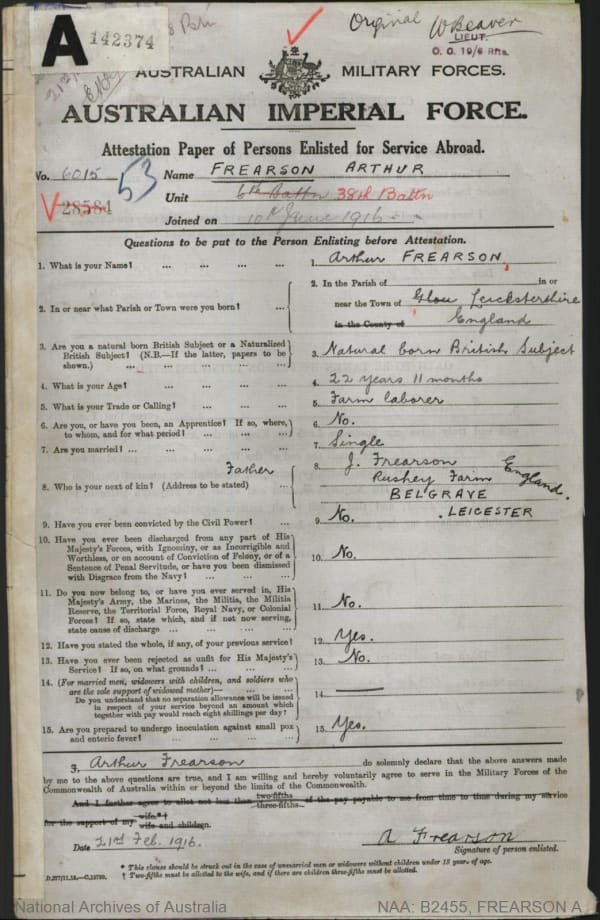 A 142374
Original W Beaver
LIEUT.
O. C. 19/6 Rfts.
AUSTRALIAN MILITARY FORCES.
AUSTRALIAN IMPERIAL FORCE.
Attestation Paper of Persons Enlisted for Service Abroad.
No. 6015 53 Name FREARSON ARTHUR
28584 Unit 6th Battn 38th Battn
Joined on 10th June 1916
Questions to be put to the Person Enlisting before Attestation.
1. What is your Name? ... ... ... ... 1. Arthur FREARSON
2. In or near what Parish or Town were you born? ... 2. In the Parish of in or
near the Town of Glou Leickstershire
in the County of England
3. Are you a natural born British Subject or a Naturalized
British Subject? (N.B.—If the latter, papers to be
shown.) ... ... ... ... 3. Natural born British Subject
4. What is your Age? ... ... ... 4. 22 years 11 months
5. What is your Trade or Calling? ... ... ... 5. Farm laborer
6. Are you, or have you been, an Apprentice? If so, where,
to whom, and for what period? ... ... ... 6. No.
7. Are you married? ... ... ... ... 7. Single
Father 8. J. Frearson
8. Who is your next of kin? (Address to be stated) ... Rushey Farm England.
BELGRAVE
. LEICESTER
9. Have you ever been convicted by the Civil Power? ... 9. No.
10. Have you ever been discharged from any part of His
Majesty's Forces, with Ignominy, or as Incorrigible and
Worthless, or on account of Conviction of Felony, or of a
Sentence of Penal Servitude, or have you been dismissed
with Disgrace from the Navy? ... ... ... 10. No.
11. Do you now belong to, or have you ever served in, His
Majesty's Army, the Marines, the Militia, the Militia
Reserve, the Territorial Force, Royal Navy, or Colonial
Forces? If so, state which, and if not now serving,
state cause of discharge ... ... ... ... 11. No.
12. Have you stated the whole, if any, of your previous service? 12. Yes.
13. Have you ever been rejected as unfit for His Majesty's
Service? If so, on what grounds? ... ... ... 13. No.
14. (For married men, widowers with children, and soldiers who
are the sole support of widowed mother)— ... ...
Do you understand that no separation allowance will be issued
in respect of your service beyond an amount which
together with pay would reach eight shillings per day? 14. —
15. Are you prepared to undergo inoculation against small pox
and enteric fever? ... ... ... ... 15. Yes.
I, Arthur Frearson do solemnly declare that the above answers made
by me to the above questions are true, and I am willing and hereby voluntarily agree to serve in the Military Forces of the
Commonwealth of Australia within or beyond the limits of the Commonwealth.
And I further agree to allot not less than two-fifths three-fifths of the pay payable to me from time to time during my service
for the support of my wife.*† wife and children.
Date 21st Feb. 1916. A Frearson
Signature of person enlisted.
* This clause should be struck out in the case of unmarried men or widowers without children under 18 years of age.
† Two-fifths must be allotted to the wife, and if there are children three-fifths must be allotted.
National Archives of Australia NAA: B2455, FREARSON A